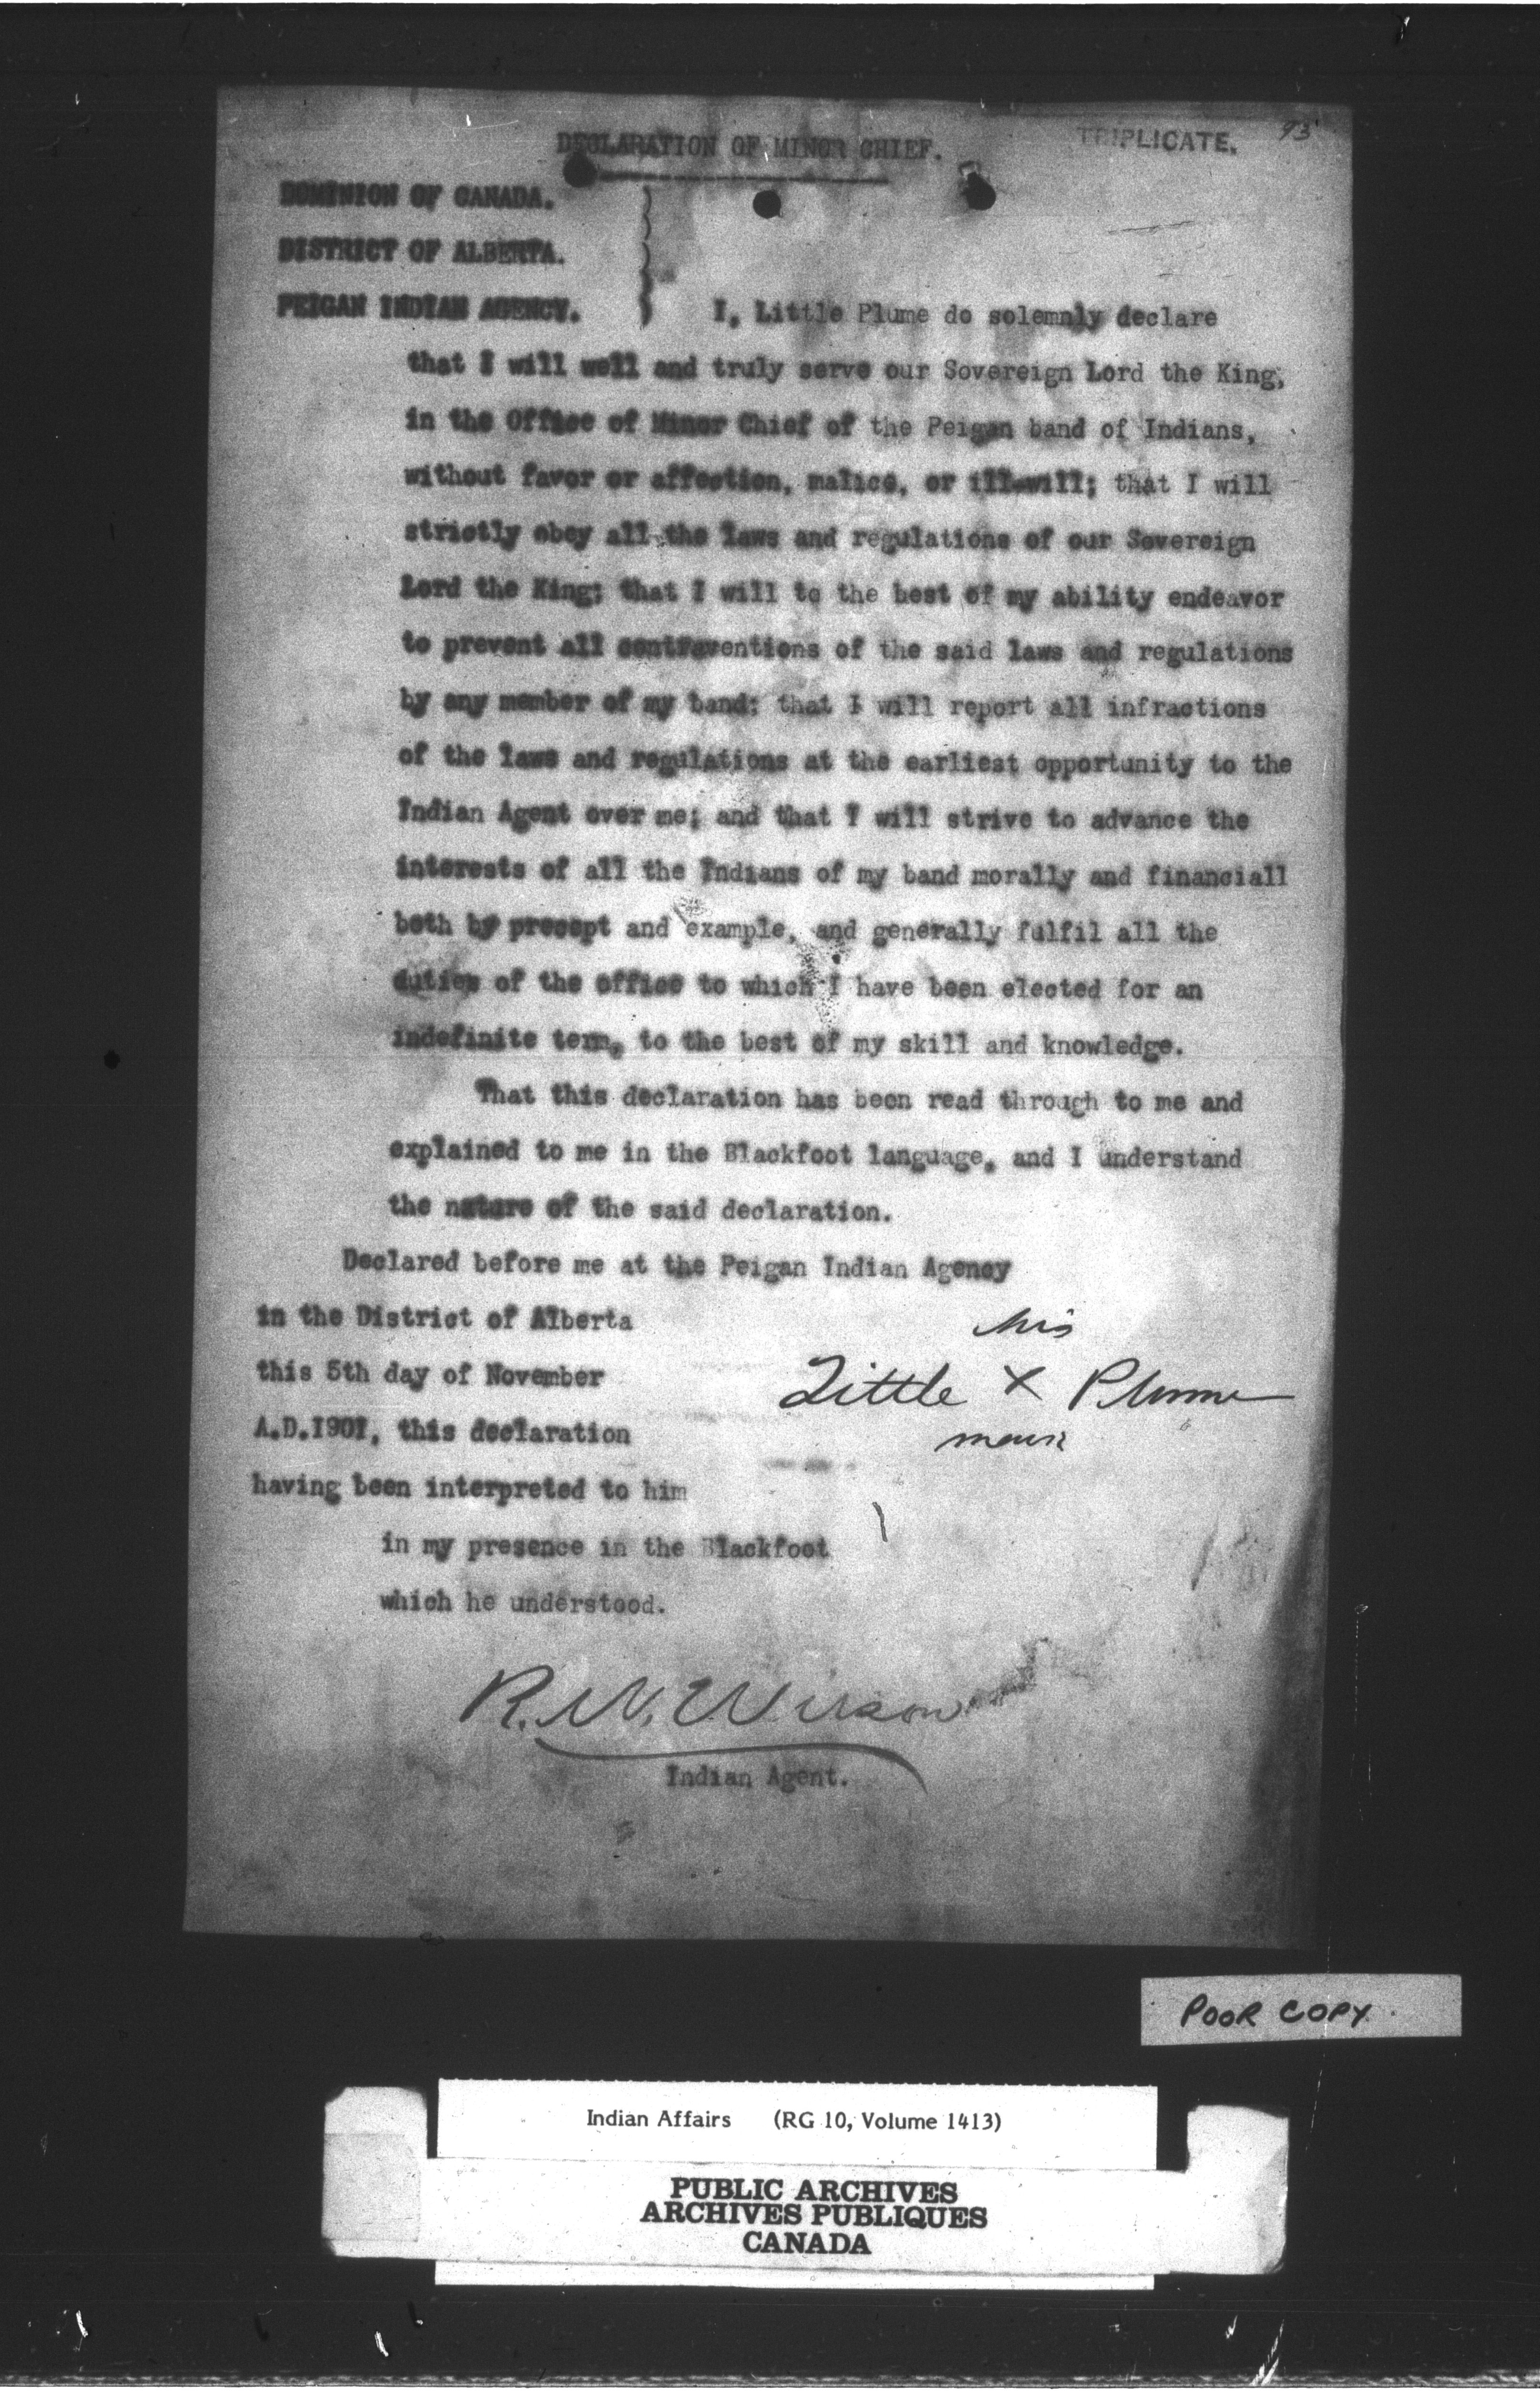 DECLARATION OF MINOR CHIEF.
TRIPLICATE. 93
DOMINION OF CANADA.
DISTRICT OF ALBERTA.
PEIGAN INDIAN AGENCY. I, Little Plume do solemnly declare
that I will well and truly serve our Sovereign Lord the King,
in the Office of Minor Chief of the Peigan band of Indians,
without favor or affection, malice, or ill-will; that I will
strictly obey all the laws and regulations of our Sovereign
Lord the King; that I will to the best of my ability endeavor
to prevent all contraventions of the said laws and regulations
by any member of my band; that I will report all infractions
of the laws and regulations at the earliest opportunity to the
Indian Agent over me; and that I will strive to advance the
interests of all the Indians of my band morally and financiall
both by precept and example, and generally fulfil all the
duties of the office to which I have been elected for an
indefinite term, to the best of my skill and knowledge.
That this declaration has been read through to me and
explained to me in the Blackfoot language, and I understand
the nature of the said declaration.
Declared before me at the Peigan Indian Agency
in the District of Alberta
this 5th day of November
A.D.1901, this declaration
having been interpreted to him
in my presence in the Blackfoot
which he understood.
his
Little X Plume
mark
R. N. Wilson
Indian Agent.
POOR COPY
Indian Affairs (RG 10, Volume 1413)
PUBLIC ARCHIVES
ARCHIVES PUBLIQUES
CANADA